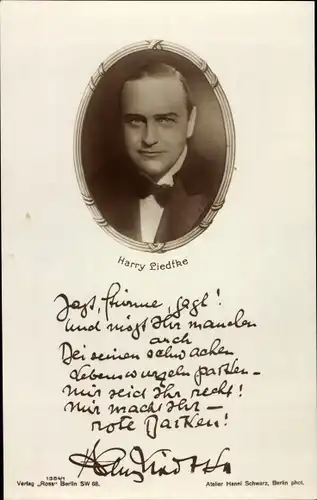 Harry Liedtke
Jagt, Stürme, jagt!
Und mögt Ihr manchen
auch
Bei seinen schwachen
Lebenswurzeln packen –
Mir seid Ihr recht!
Mir macht Ihr –
rote Backen!
Harry Liedtke
Verlag „Ross“ Berlin SW 68.
Atelier Hanni Schwarz, Berlin phot.